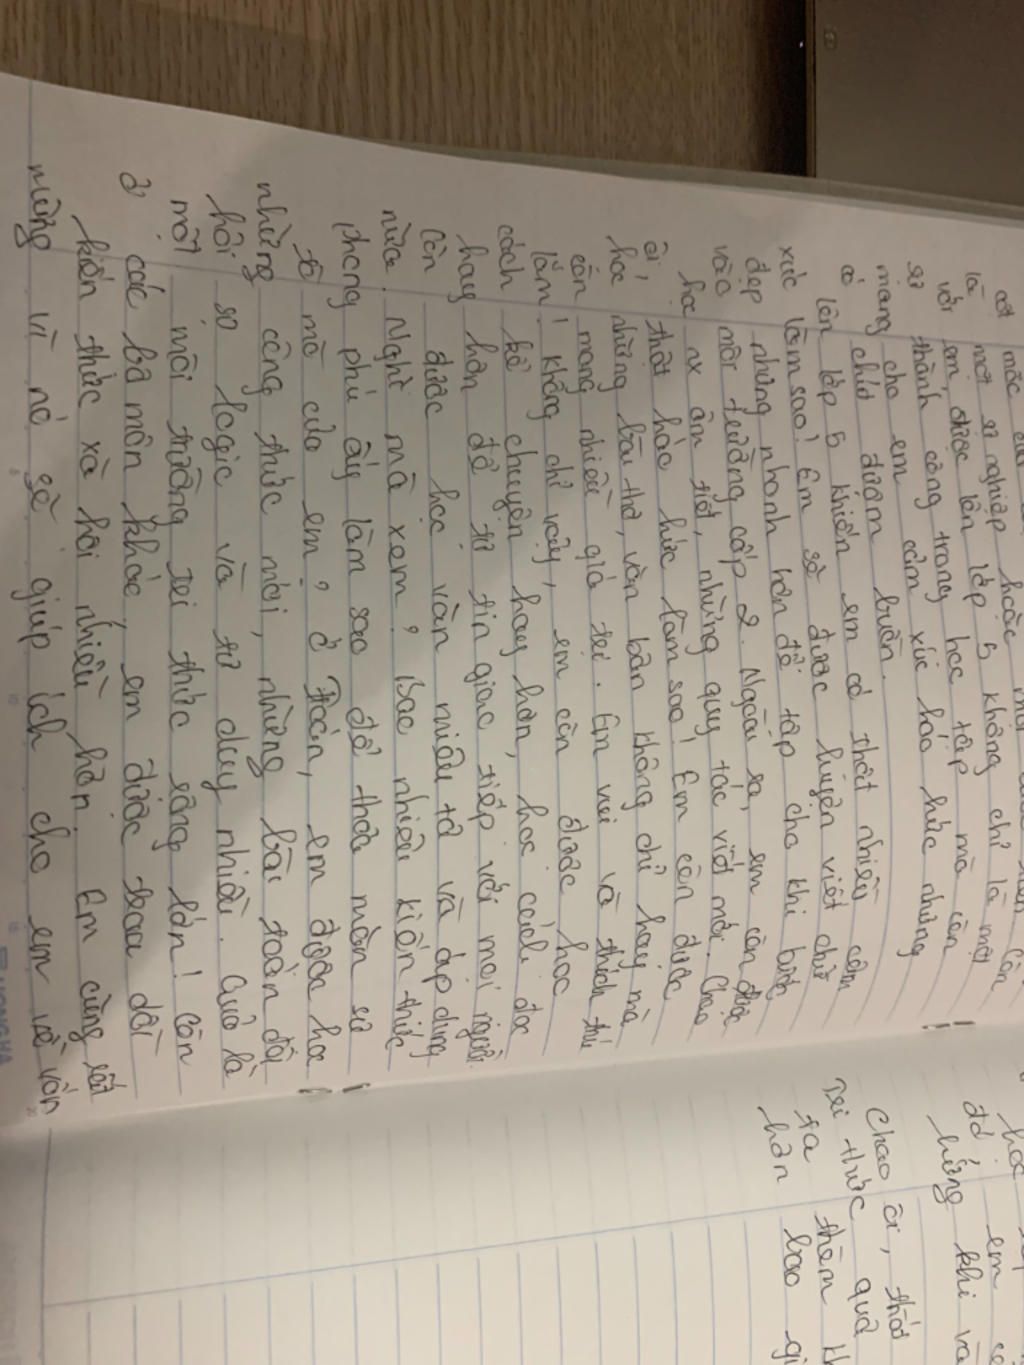 cột mốc
là một sự nghiệp hoặc
với em, được lên lớp 5 không chỉ là một
sự thành công trong học tập mà còn
mang cho em cảm xúc háo hức nhưng
có chút đượm buồn.
Lên lớp 5 khiến em có thật nhiều cảm
xúc làm sao! Em sẽ được luyện viết chữ
đẹp nhưng nhanh hơn để tập cho khi bước
vào môi trường cấp 2. Ngoài ra, em còn được
học nx âm tiết, những quy tắc viết mới. Chao
ôi, thật háo hức làm sao! Em còn được
học những bài thơ, văn bản không chỉ hay mà
còn mang nhiều giá trị. Em vui và thích thú
lắm! Không chỉ vậy, em còn được học
cách kể chuyện hay hơn, học cách đọc
hay hơn để tự tin giao tiếp với mọi người.
Còn được học văn miêu tả và áp dụng
nữa. Nghĩ mà xem? Bao nhiêu kiến thức
phong phú ấy làm sao để thỏa mãn sự
tò mò của em? Ở Toán, em được học
những công thức mới, những bài toán đòi
hỏi sự logic và tư duy nhiều. Quả là
một môi trường tri thức rộng lớn! Còn
ở các bộ môn khác, em được trau dồi
kiến thức xã hội nhiều hơn. Em cũng rất
mừng vì nó sẽ giúp ích cho em về vấn
học
đó em
hứng khi và
Chao ôi, thật
tri thức quả
ta thêm
hơn bao